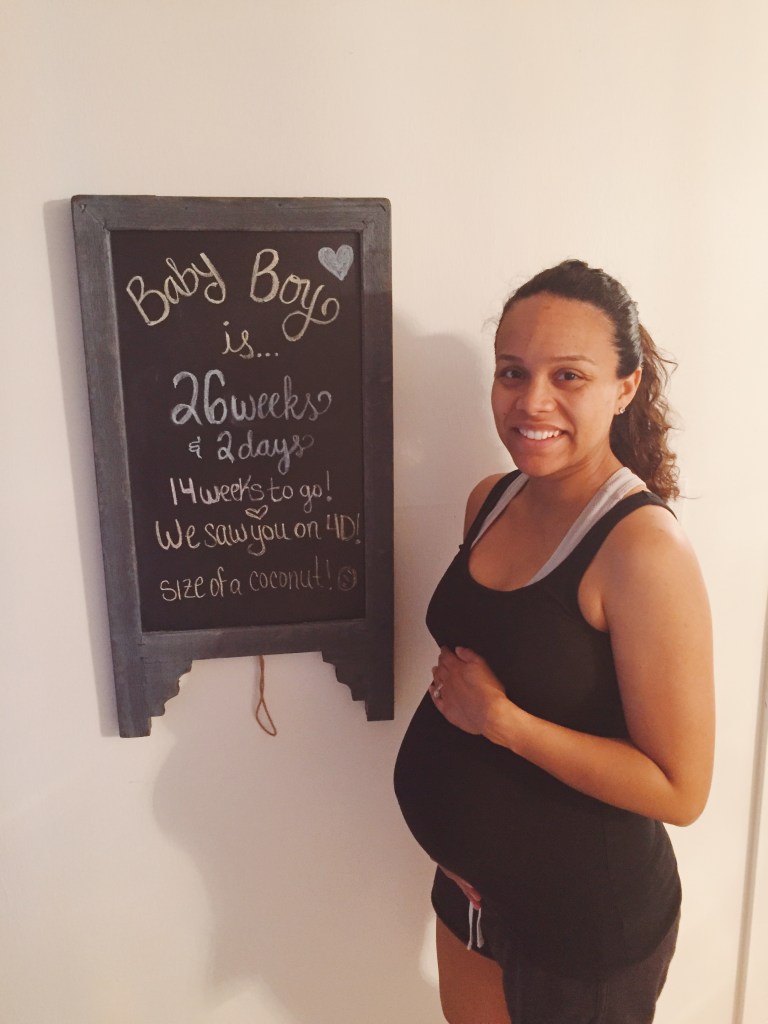 Baby Boy
is...
26 weeks
& 2 days
14 weeks to go!
We saw you on 4D!
size of a coconut!